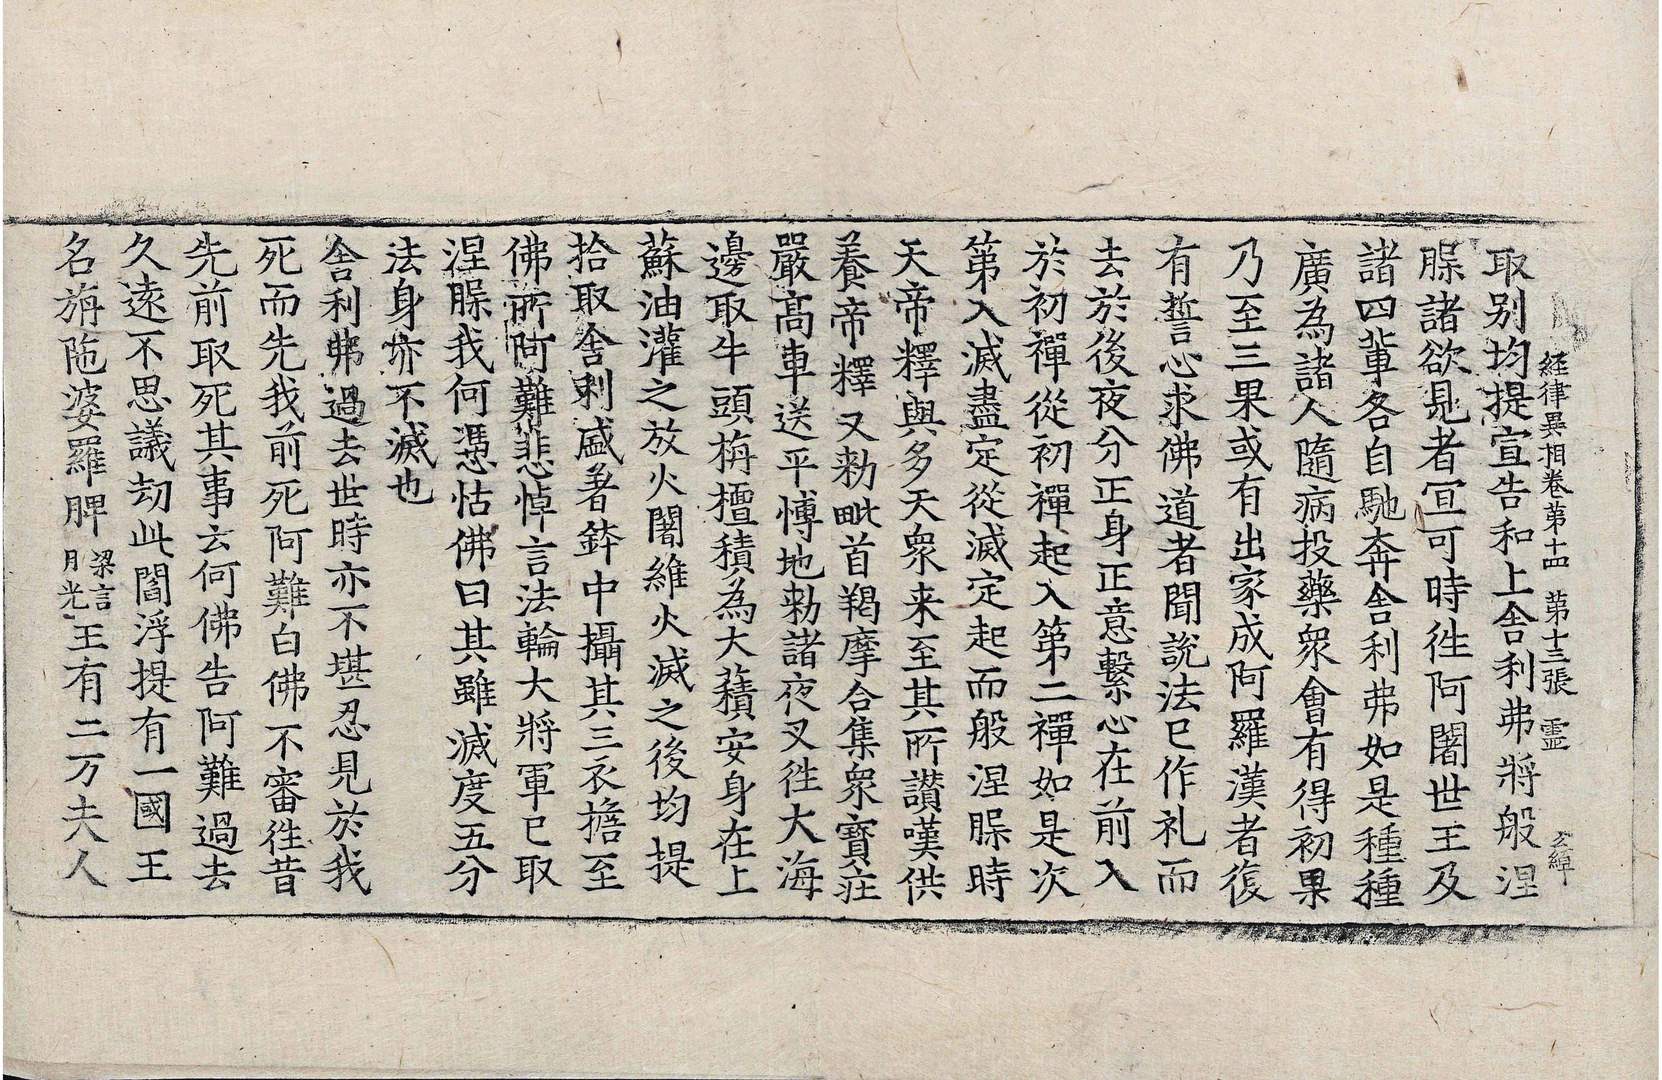 経律異相卷第十四 第十三張 霊 玄緯
取別均提宣告和上舍利弗將般涅
𦡱諸欲見者冝可時徃阿闍世王及
諸四軰各自馳奔舍利弗如是種種
廣為諸人隨病投藥衆會有得初果
乃至三果或有出家成阿羅漢者復
有誓心求佛道者聞說法已作礼而
去於後夜分正身正意繫心在前入
於初禪從初禪起入第二禪如是次
第入滅盡定從滅定起而般涅𦡱時
天帝釋與多天衆来至其所讃嘆供
養帝釋又勑毗首羯摩合集衆寳莊
嚴髙車送平博地勑諸夜叉徃大海
邊取牛頭栴檀積為大𧂐安身在上
蘇油灌之放火闍維火滅之後均提
拾取舍利盛著鉢中攝其三衣擔至
佛所阿難悲悼言法輪大將軍已取
涅𦡱我何憑怙佛曰其雖滅度五分
法身亦不滅也
舍利弗過去世時亦不堪忍見於我
死而先我前死阿難白佛不審徃昔
先前取死其事云何佛告阿難過去
久遠不思議刼此閻浮提有一國王
名旃陁婆羅脾梁言月光王有二万夫人